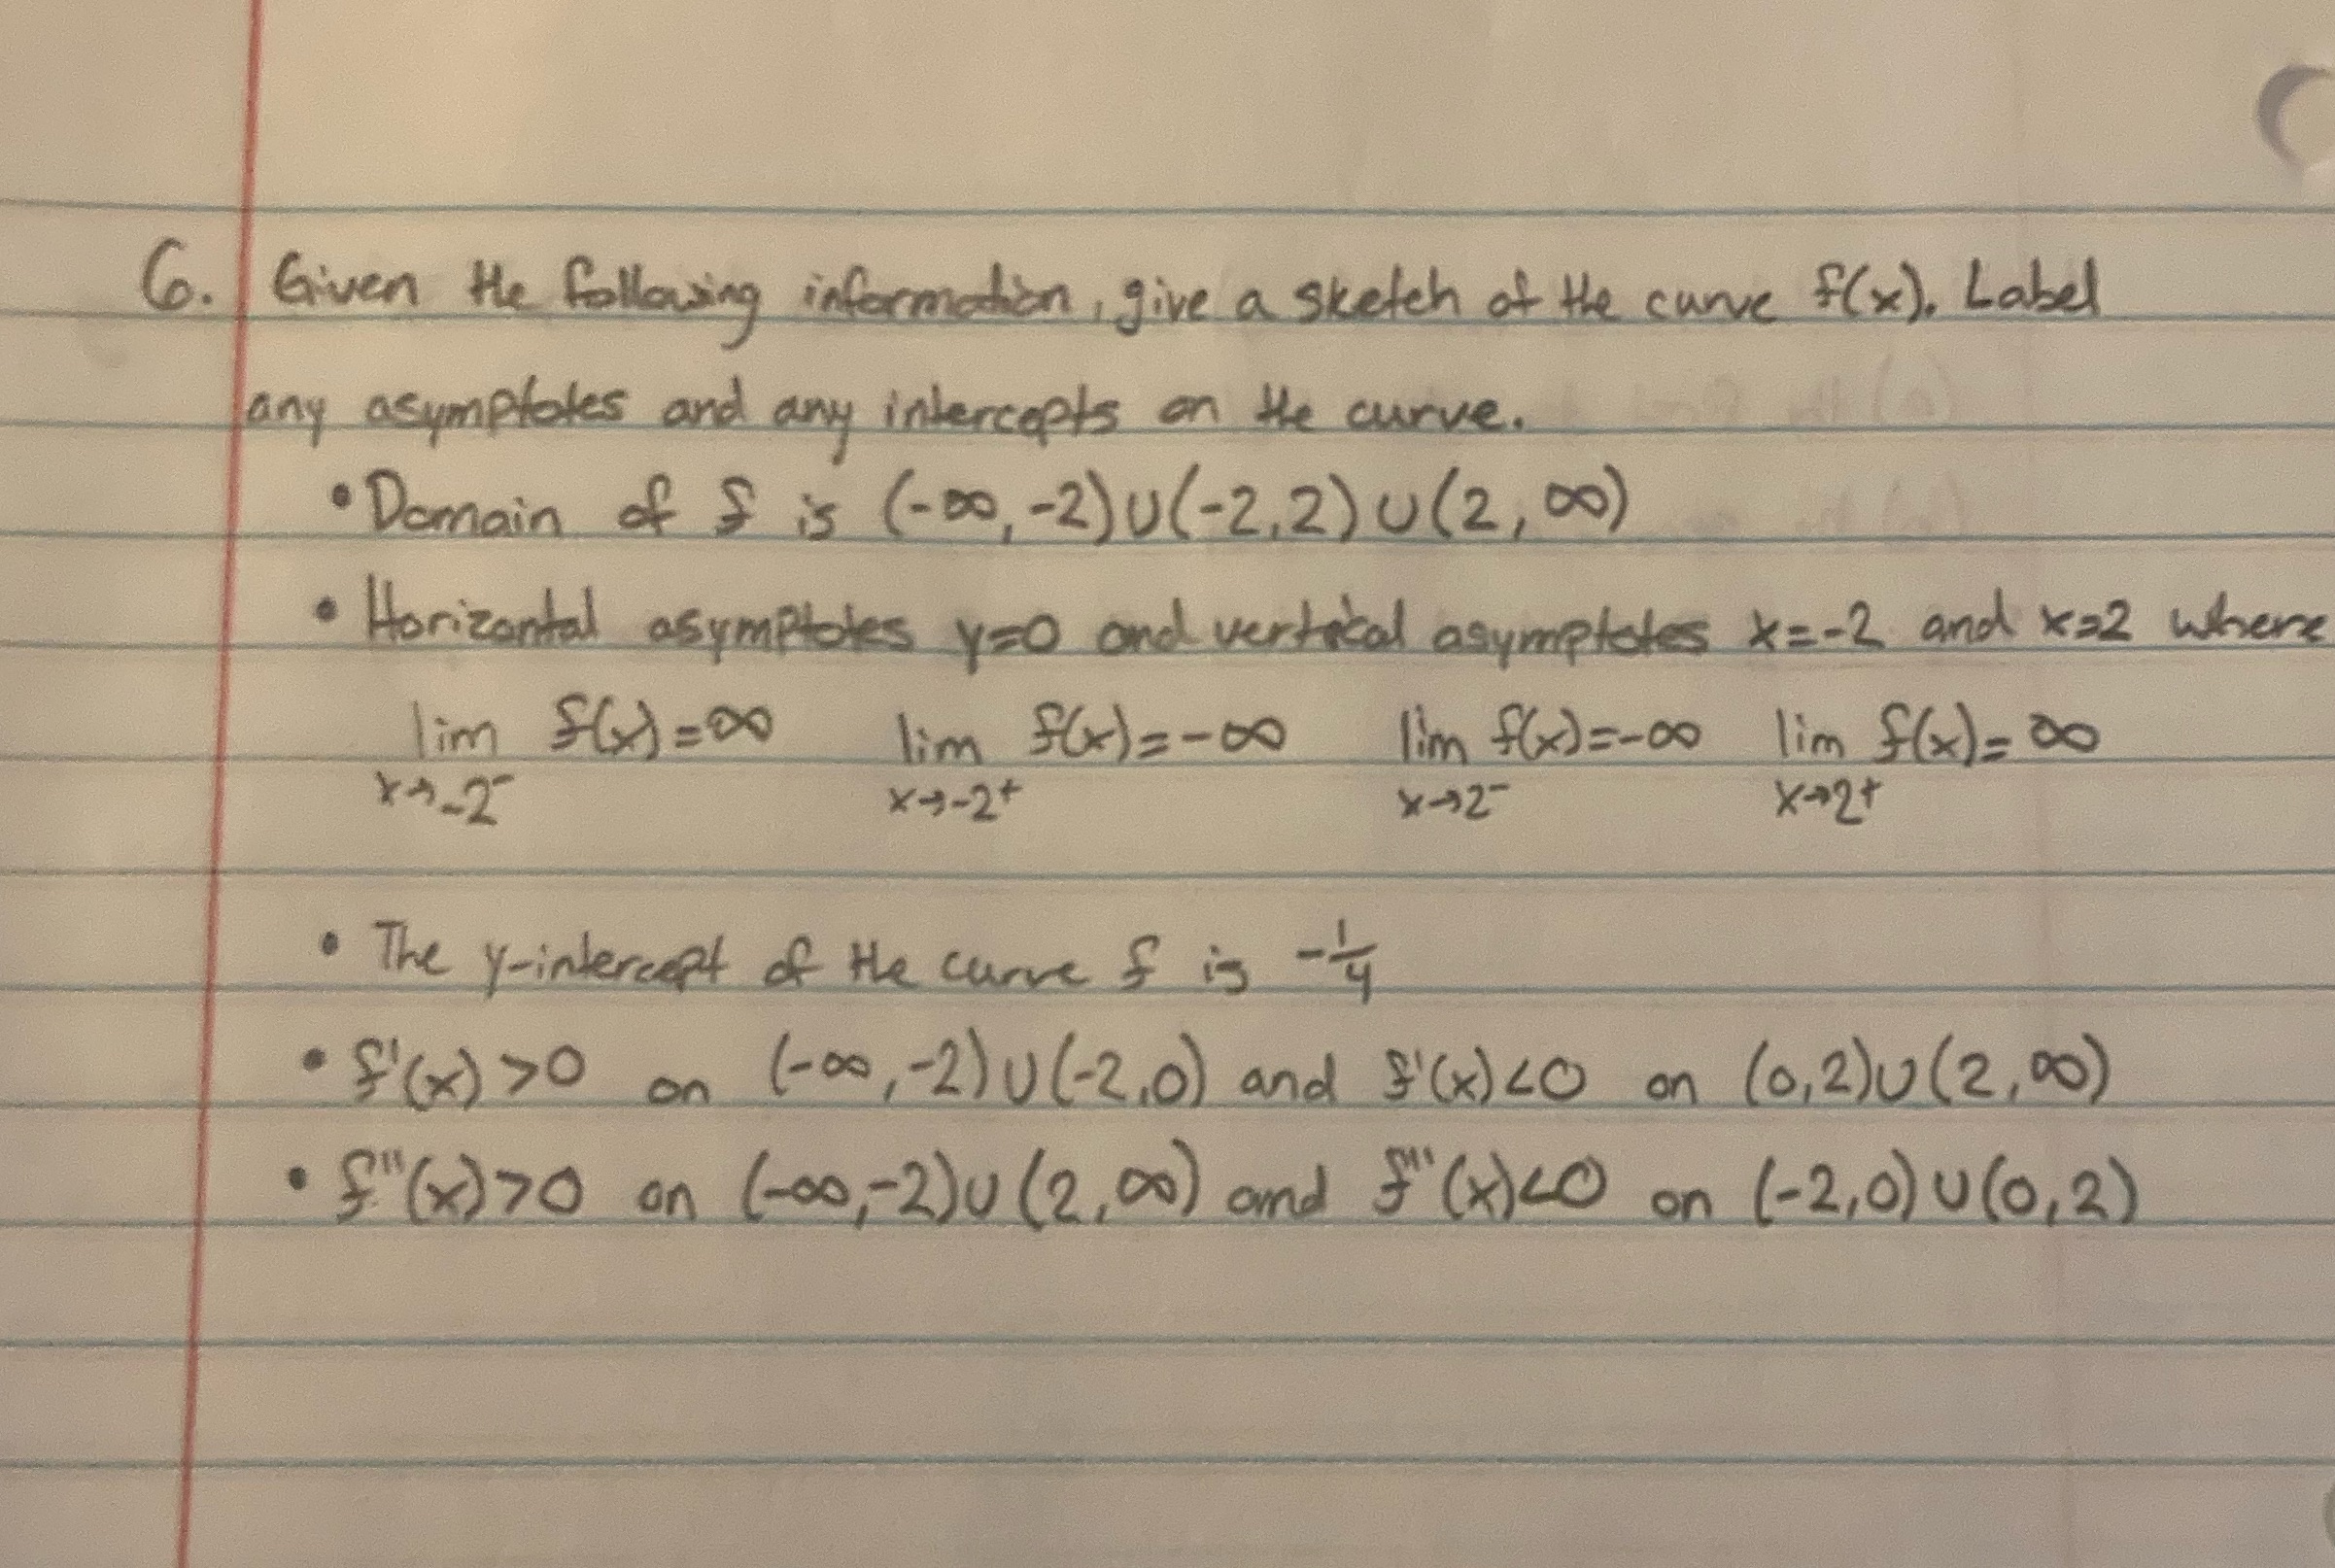 6. Given the following information, give a sketch of the curve f(x). Label
any asymptotes and any intercepts on the curve.
• Domain of f is (-∞, -2)∪(-2,2)∪(2, ∞)
• Horizontal asymptotes y=0 and vertical asymptotes x=-2 and x=2 where
lim x→-2⁻ f(x)=∞ lim x→-2⁺ f(x)=-∞ lim x→2⁻ f(x)=-∞ lim x→2⁺ f(x)=∞
• The y-intercept of the curve f is -1/4
• f'(x)>0 on (-∞,-2)∪(-2,0) and f'(x)<0 on (0,2)∪(2,∞)
• f"(x)>0 on (-∞,-2)∪(2,∞) and f"(x)<0 on (-2,0)∪(0,2)